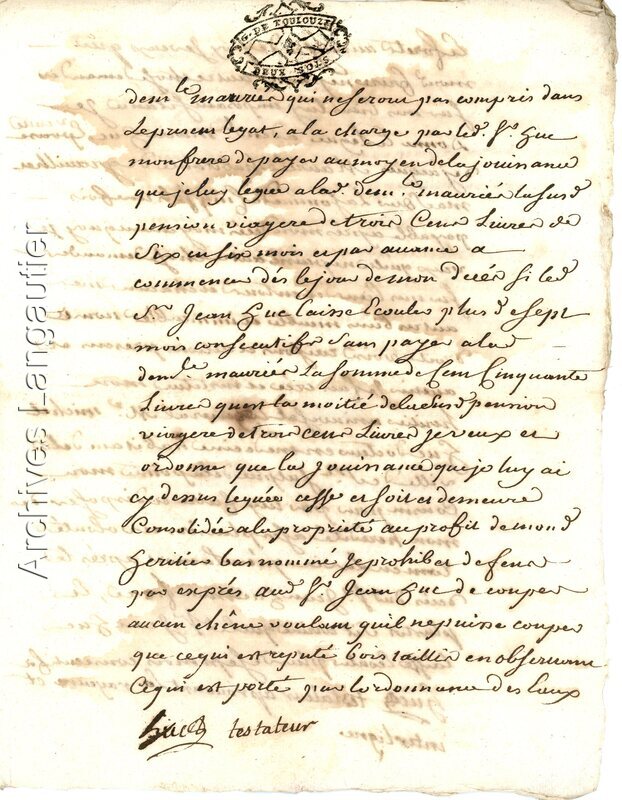 G. DE TOULOUZE
DEUX SOLS
dem.le mauriés qui ne seront pas compris dans
Le present legat, a la charge par led. Sr. huc
mon frere de payer au moyen de la jouissance
que je luy legue a lad. dem.le mauriés lasusd
pension viagere de trois Cens Livres de
Six en six mois et par avance a
commencer dés le jour de mon decés si led
Sr. Jean huc laisse Ecouler plus de sept
mois consecutifs sans payer a lad
dem.le mauriés La somme de Cent Cinquante
Livres quest la moitié de lasusd pension
viagere de trois cens Livres je veux et
ordonne que la Jouissance que je luy ai
cy dessus leguée cesse et soit et demeure
Consolidée a la proprieté au profit de mond
heritier bas nommé Je prohibe et defens
par exprés aud Sr. Jean huc de couper
aucun chêne voulant quil ne puisse couper
que ce qui est reputé bois taillis en observant
ce qui est porté par lordonnance des Eaux
huc testateur
Archives Langautier